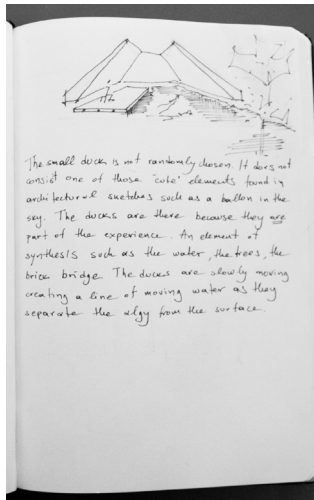 The small duck is not randomly chosen. It does not
consist one of those "cute" elements found in
architectural sketches such as a ballon in the
sky. The ducks are there because they are
part of the experience. An element of
synthesis such as the water, the trees, the
brick bridge. The ducks are slowly moving
creating a line of moving water as they
separate the algy from the surface.